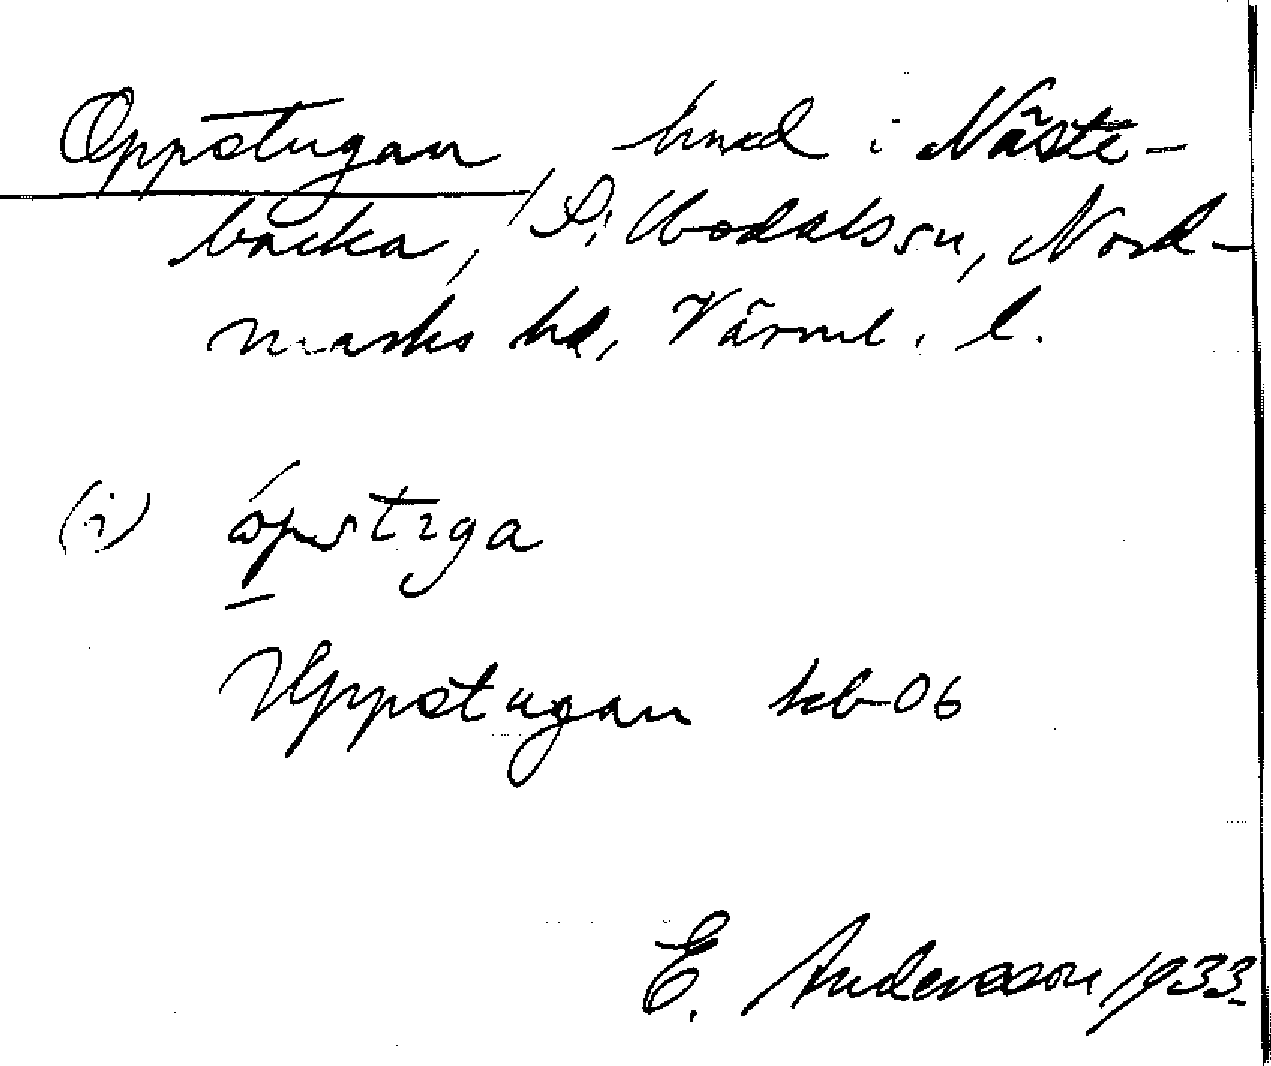 Oppstugan, hmd i Näste-
backa, S. Ny sn, Nord-
marks hd, Värml. l.
(i) ópstuga
Uppstugan kb 06
E. Andersson 1933